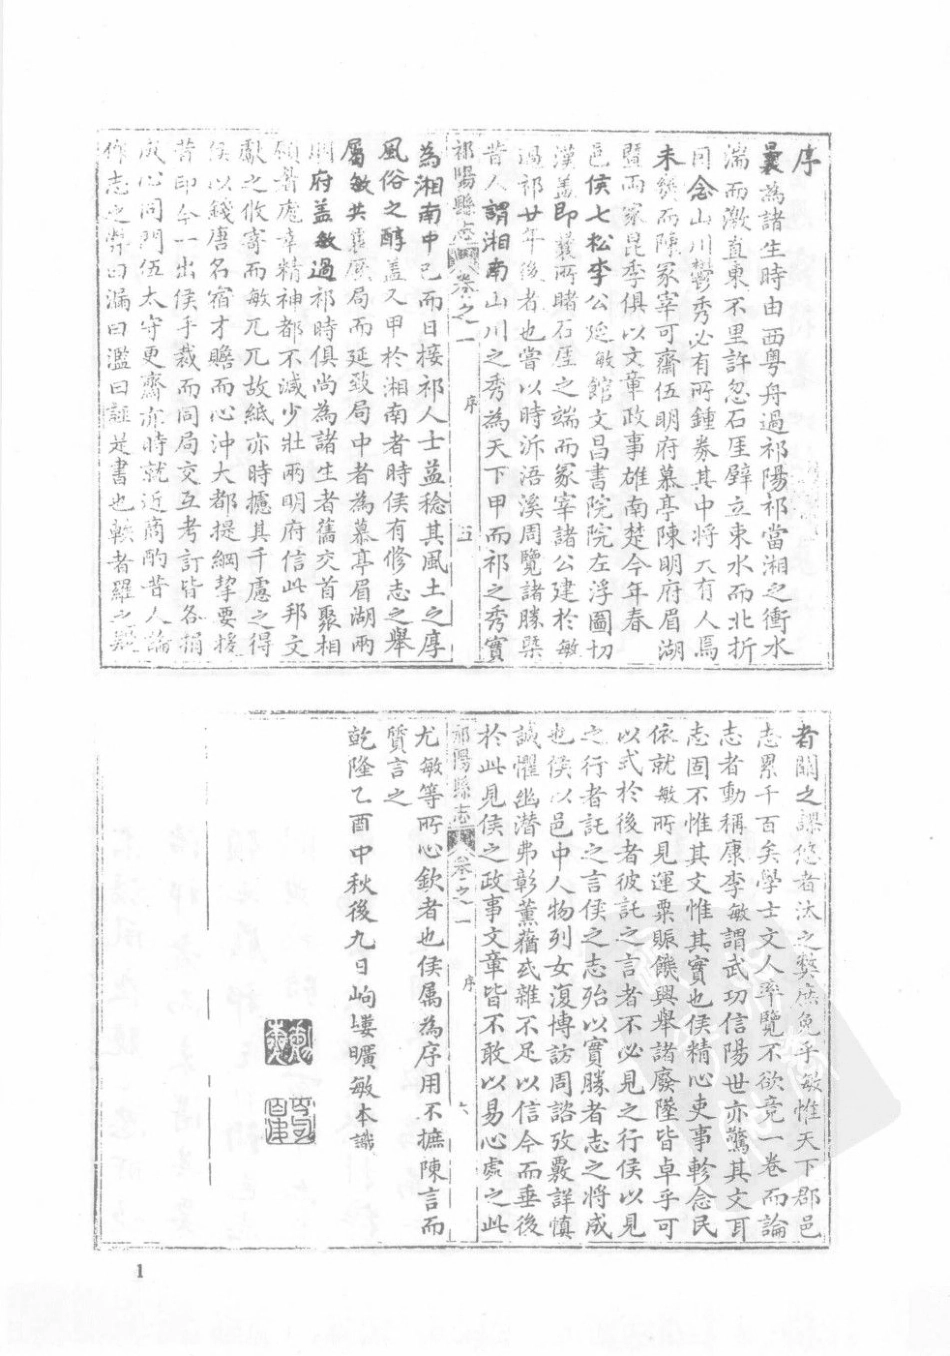 序
曩為諸生時由西粵舟過祁陽祁當湘之衝水
湍而激直東不里許忽石厓壁立東水而北折
因念山川鬱秀必有所鍾劵其中將大有人焉
未幾而陳冢宰可齋伍明府慕亭陳明府眉湖
暨而冢昆季俱以文章政事雄南楚今年春
邑侯七松李公延敏館文昌書院院左浮圖切
漢蓋即曩所睹石厓之端而冢宰諸公建於敏
過祁廿年後者也嘗以時泝浯溪周覽諸勝槩
昔人謂湘南山川之秀為天下甲而祁之秀實
祁陽縣志 卷之一 序 五
為湘南中已而日接祁人士益稔其風土之厚
風俗之醇蓋又甲於湘南者時侯有修志之舉
屬敏共襄厥局而延致局中者為慕亭眉湖兩
明府蓋敏過祁時俱尚為諸生者舊交首聚相
顧耆龐幸精神都不減少壯兩明府信此邦文
獻之攸寄而敏兀兀故紙亦時攄其千慮之得
侯以錢唐名宿才贍而心沖大都提綱挈要援
昔印今一出侯手裁而同局交互考訂皆各捐
成心同門伍太守更齋亦時就近商酌昔人論
作志之弊曰漏曰濫曰誣是書也軼者羅之疑
者闕之謬悠者汰之獘庶免乎敏惟天下郡邑
志累千百矣學士文人率覽不欲竟一卷而論
志者動稱康李敏謂武功信陽世亦驚其文耳
志固不惟其文惟其實也侯精心吏事軫念民
依就敏所見運粟賑饑興舉諸廢墜皆卓乎可
以式於後者彼託之言者不必見之行侯以見
之行者託之言侯之志殆以實勝者志之將成
也侯以邑中人物列女復博訪周諮攷覈詳慎
誠懼幽潛弗彰薰蕕或雜不足以信今而垂後
於此見侯之政事文章皆不敢以易心處之此
祁陽縣志 卷之一 序 六
尤敏等所心欽者也侯屬為序用不摭陳言而
質言之
乾隆乙酉中秋後九日岣嶁曠敏本識